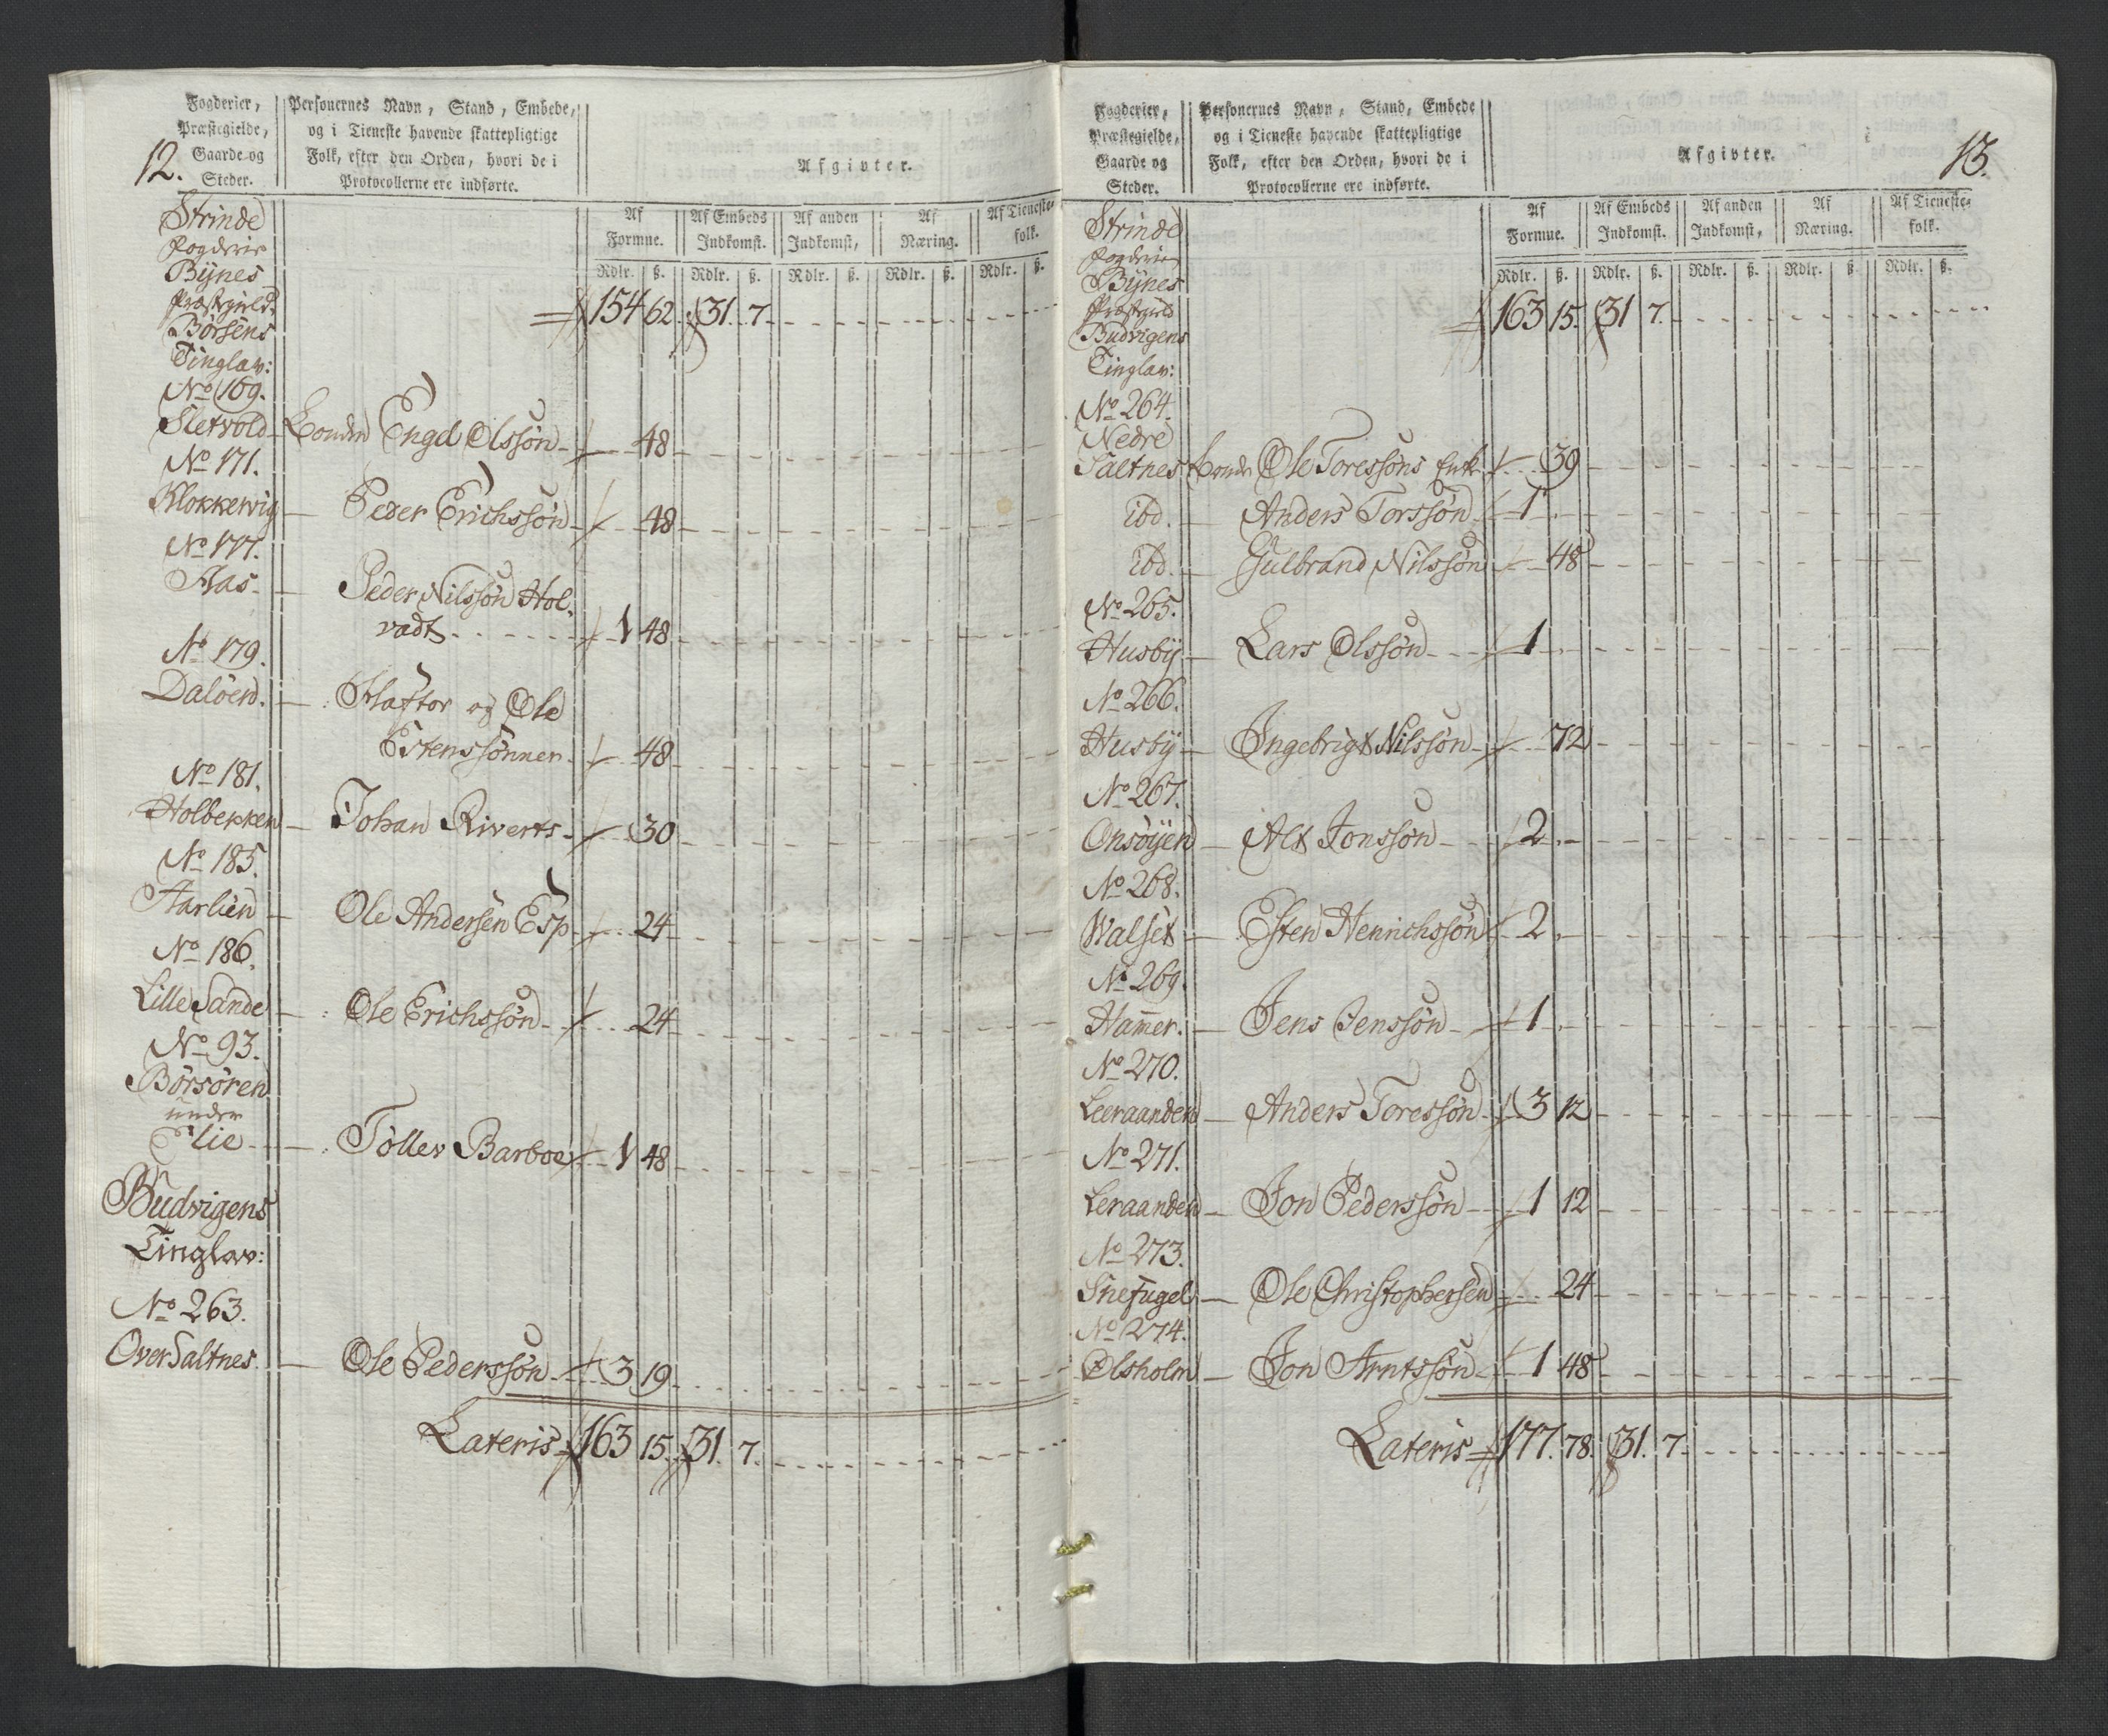 12.
Fogderier,
Præstegielde,
Gaarde og
Steder.
Personernes Navn, Stand, Embede,
og i Tieneste havende skattepligtige
Folk, efter den Orden, hvori de i
Protocollerne ere indførte.
Afgivter.
Af Formue. Af Embeds Indkomst. Af anden Indkomst, Af Næring. Af Tieneste-folk.
Rdlr. ß. Rdlr. ß. Rdlr. ß. Rdlr. ß. Rdlr. ß.
Strinde
Fogderie
Bÿnes
Præstegield.
Børsens 154 62. 31. 7.
Tinglav:
No 169.
Sletvold Bonden Engel Olssøn 48
No 171.
Klokkervig Peder Erichssøn 48
No 177.
Aas Peder Nilssøn Hol-
vadt 1 48
No 179.
Daløen. Haftor og Ole
Estenssønner 48
No 181.
Holbekken Johan Riverts 30
No 185.
Aarlien Ole Andersen Esp 24
No 186.
Lille Sande Ole Erichssøn 24
No 93.
Børsøren
under
Elie Toller Barboe 1 48
Budvigens
Tinglav:
No 263.
Over Saltnes Ole Pederssøn 3 19
Lateris 163 15. 31. 7.
13.
Fogderier,
Præstegielde,
Gaarde og
Steder.
Personernes Navn, Stand, Embede
og i Tieneste havende skattepligtige
Folk, efter den Orden, hvori de i
Protocollerne ere indførte.
Afgivter.
Af Formue. Af Embeds Indkomst. Af anden Indkomst, Af Næring. Af Tieneste-folk.
Rdlr. ß. Rdlr. ß. Rdlr. ß. Rdlr. ß. Rdlr. ß.
Strinde
Fogderie
Bÿnes
Præstegield 163 15. 31 7.
Budvigens
Tinglav:
No 264.
Nedre
Saltnes Bonde Ole Toressøns Enk 39
ibd. Anders Torssøn 1
ibd. Gulbrand Nilssøn 48
No 265.
Husbÿ Lars Olssøn 1
No 266.
Husbÿ Ingebrigt Nilssøn 72
No 267.
Onsøÿen Alt Jonssøn 2
No 268.
Walset Esten Henrichssøn 2
No 269.
Ham̄er. Jens Jenssøn 1
No 270.
Leeraanden Anders Toressøn 3 12
No 271.
Leraanden Jon Pederssøn 1 12
No 273.
Snefugel Ole Christophersen 24
No 274.
Ølsholm Jon Arntssøn 1 48
Lateris 177. 78. 31. 7.